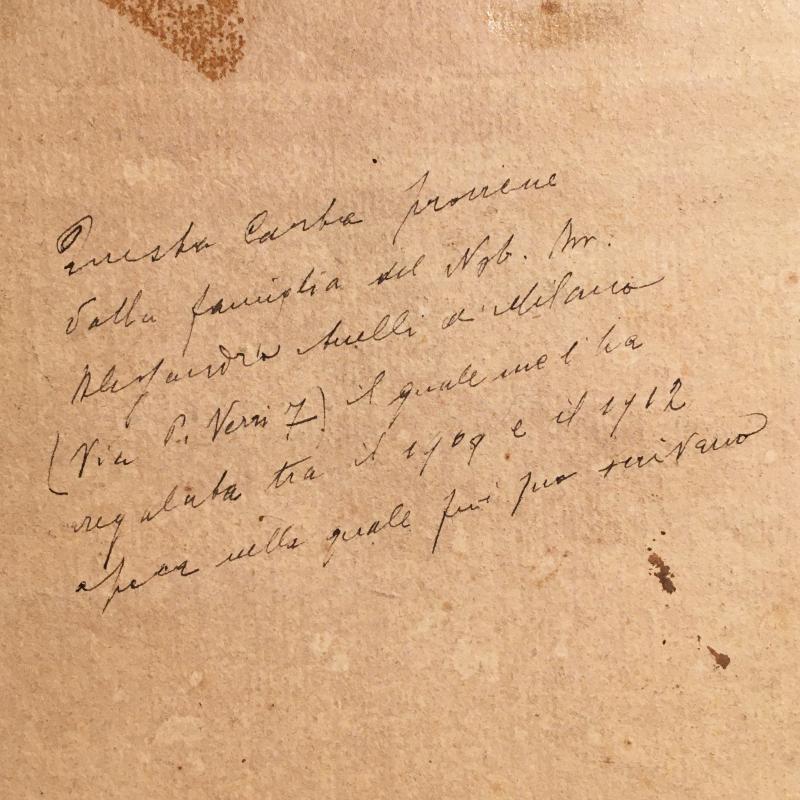 Questa Carta proviene
dalla famiglia del Nob. Dr.
Alessandro Anelli di Milano
(Via P. Verri 7) il quale me l'ha
regalata tra il 1909 e il 1912
epoca nella quale fui suo scrivano